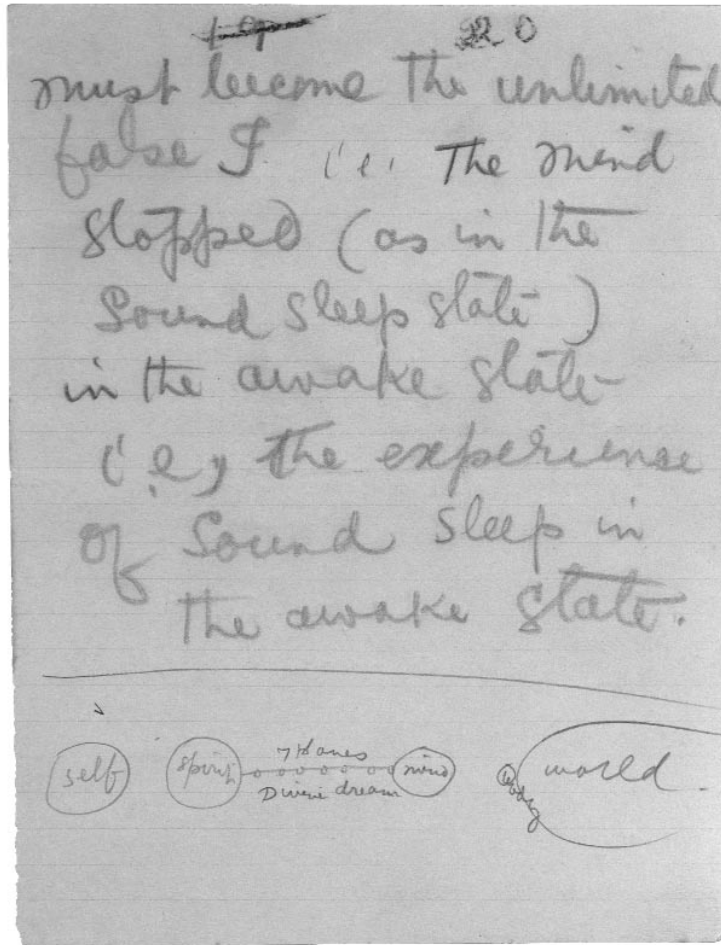 220
must become the unlimited
false I i.e. the mind
stopped (as in the
sound sleep state)
in the awake state
i.e, the experience
of sound sleep in
the awake state.
7 planes
self spirit mind body world.
Divine dream